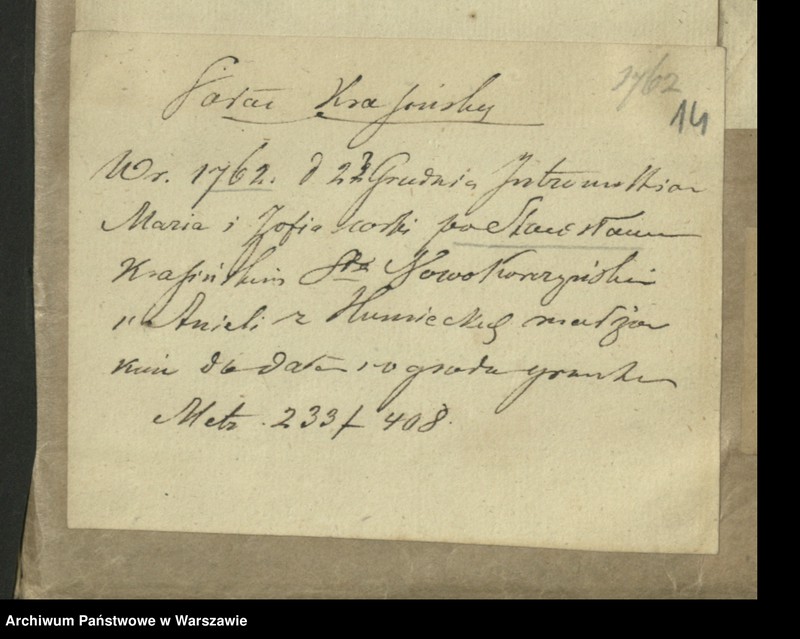 1762
14
Pałac Krasińsky
W r. 1762. d 22 Grudnia Intromissia
Maria i Zofia corki po Stanisławie
Krasińskim Sta Nowokorczyńskim
i Anieli z Humieckich małżon
do
Metr. 233 f 408.
Archiwum Państwowe w Warszawie